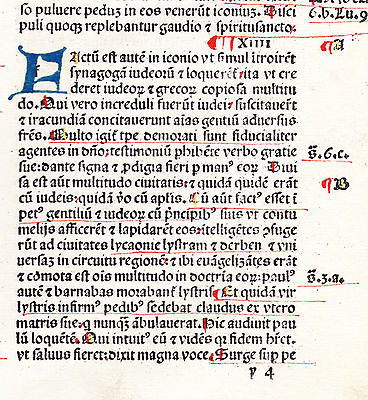 so pulvere pedum in eos venerūt iconiuz. Disci
puli quoqȝ replebantur gaudio ⁊ spiritusancto.
¶¶ XIIII
FActū est autē in iconio vt simul itroirēt
synagogā iudeorū ⁊ loquerēt᷑ ita vt cre
deret iudeorū ⁊ grecorū copiosa multitu
do. Qui vero increduli fuerūt iudei: suscitauerūt
⁊ iracundiā concitauerunt aīas gentiū aduersus
frēs. Multo igit᷑ tp̄e demorati sunt fiducialiter
agentes in dn̄o: testimoniū phibēte verbo gratie
sue: dante signa ⁊ prodigia fieri p man᷒ eorū. Diui
sa est aūt multitudo ciuitatis: ⁊ quidā quidē erāt
cū iudeis: quidā vo cū aplis. Cū aūt fact᷒ esset ī
pet᷒ gentiliū ⁊ iudeorū cū pncipib᷒ suis vt contu
melijs afficerēt ⁊ lapidarēt eos: itelligētes ꝓfuge
rūt ad ciuitates lycaonie lystram ⁊ derben ⁊ vni
uersaz in circuitu regionē: ⁊ ibi euāgelizātes erāt
⁊ comota est ois multitudo in doctria eorū: paul᷒
autē ⁊ barnabas morabant᷑ lystris. Et quidā vir
lystris infirm᷒ pedib᷒ sedebat claudus ex vtero
matris sue: q nunqȝ ābulauerat. Hic audiuit pau
lū loquētē. Qui intuit᷒ eū ⁊ vidēs qꝛ fidem hr̄et.
vt saluus fieret: dixit magna voce. Surge sup pe
y 4
6.b. Lu.9
¶ A
ẞ.6.c.
¶ B
ẞ.3.a.